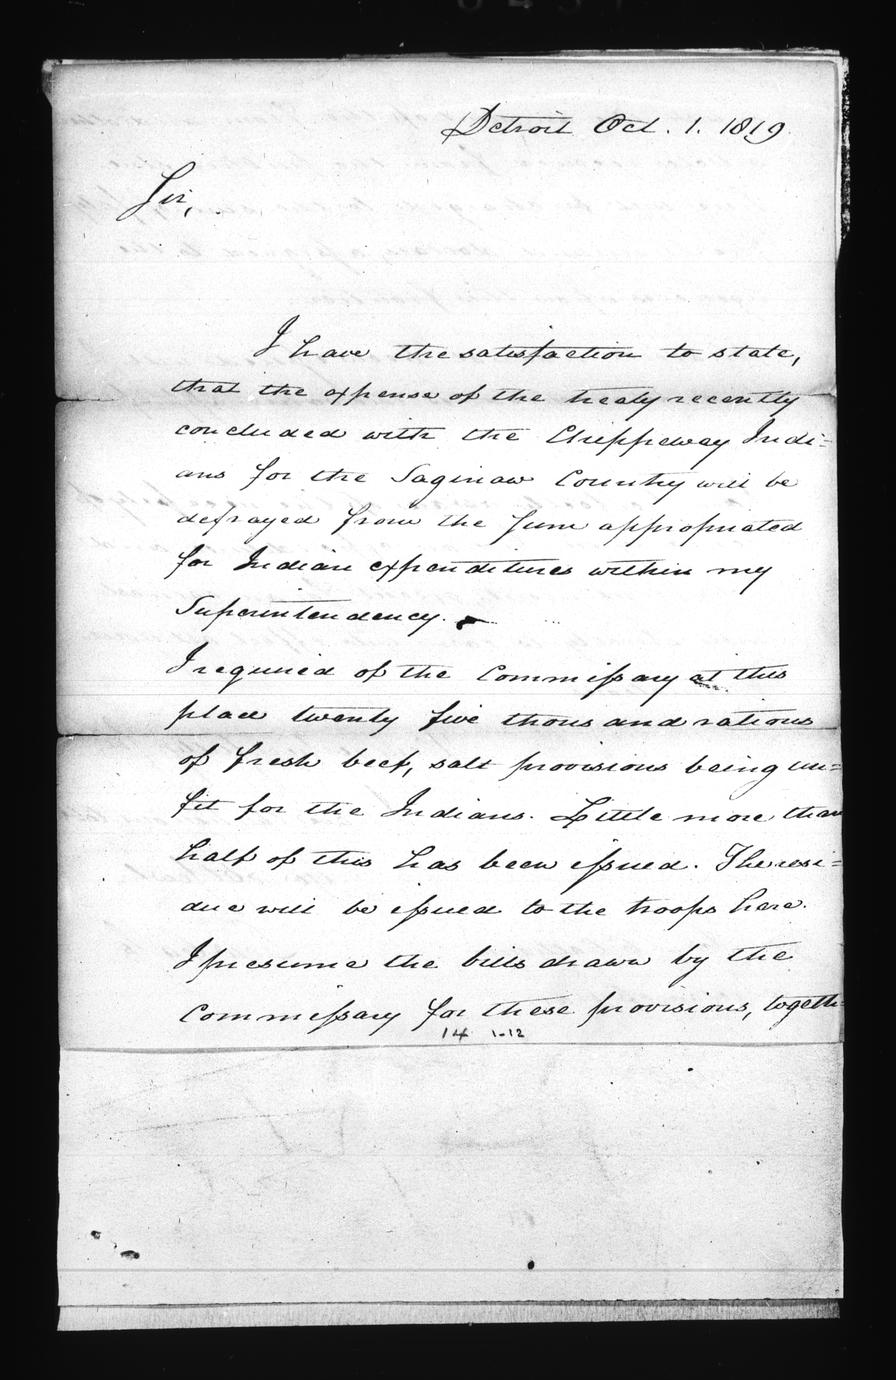 Detroit Oct. 1. 1819.
Sir,
I have the satisfaction to state,
that the expense of the treaty recently
concluded with the Chippeway Indi=
ans for the Saginaw Country will be
defrayed from the sum appropriated
for Indian expenditures within my
Superintendency.
I required of the Commissary at this
place twenty five thousand rations
of fresh beef, salt provisions being un=
fit for the Indians. Little more than
half of this has been issued. The resi=
due will be issued to the troops here.
I presume the bills drawn by the
Commissary for these provisions, togeth=
14 1-12